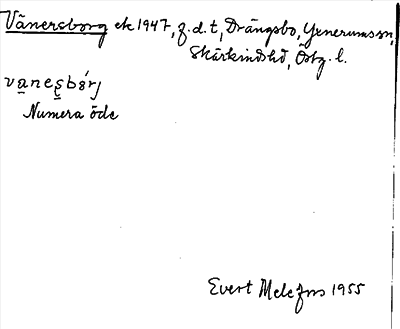 Vänersborg ek 1947, f.d. t, Drängsbo, Yxnerums sn,
Skärkinds hd, Östg. l.
vanesbórj
Numera öde
Evert Melefors 1955